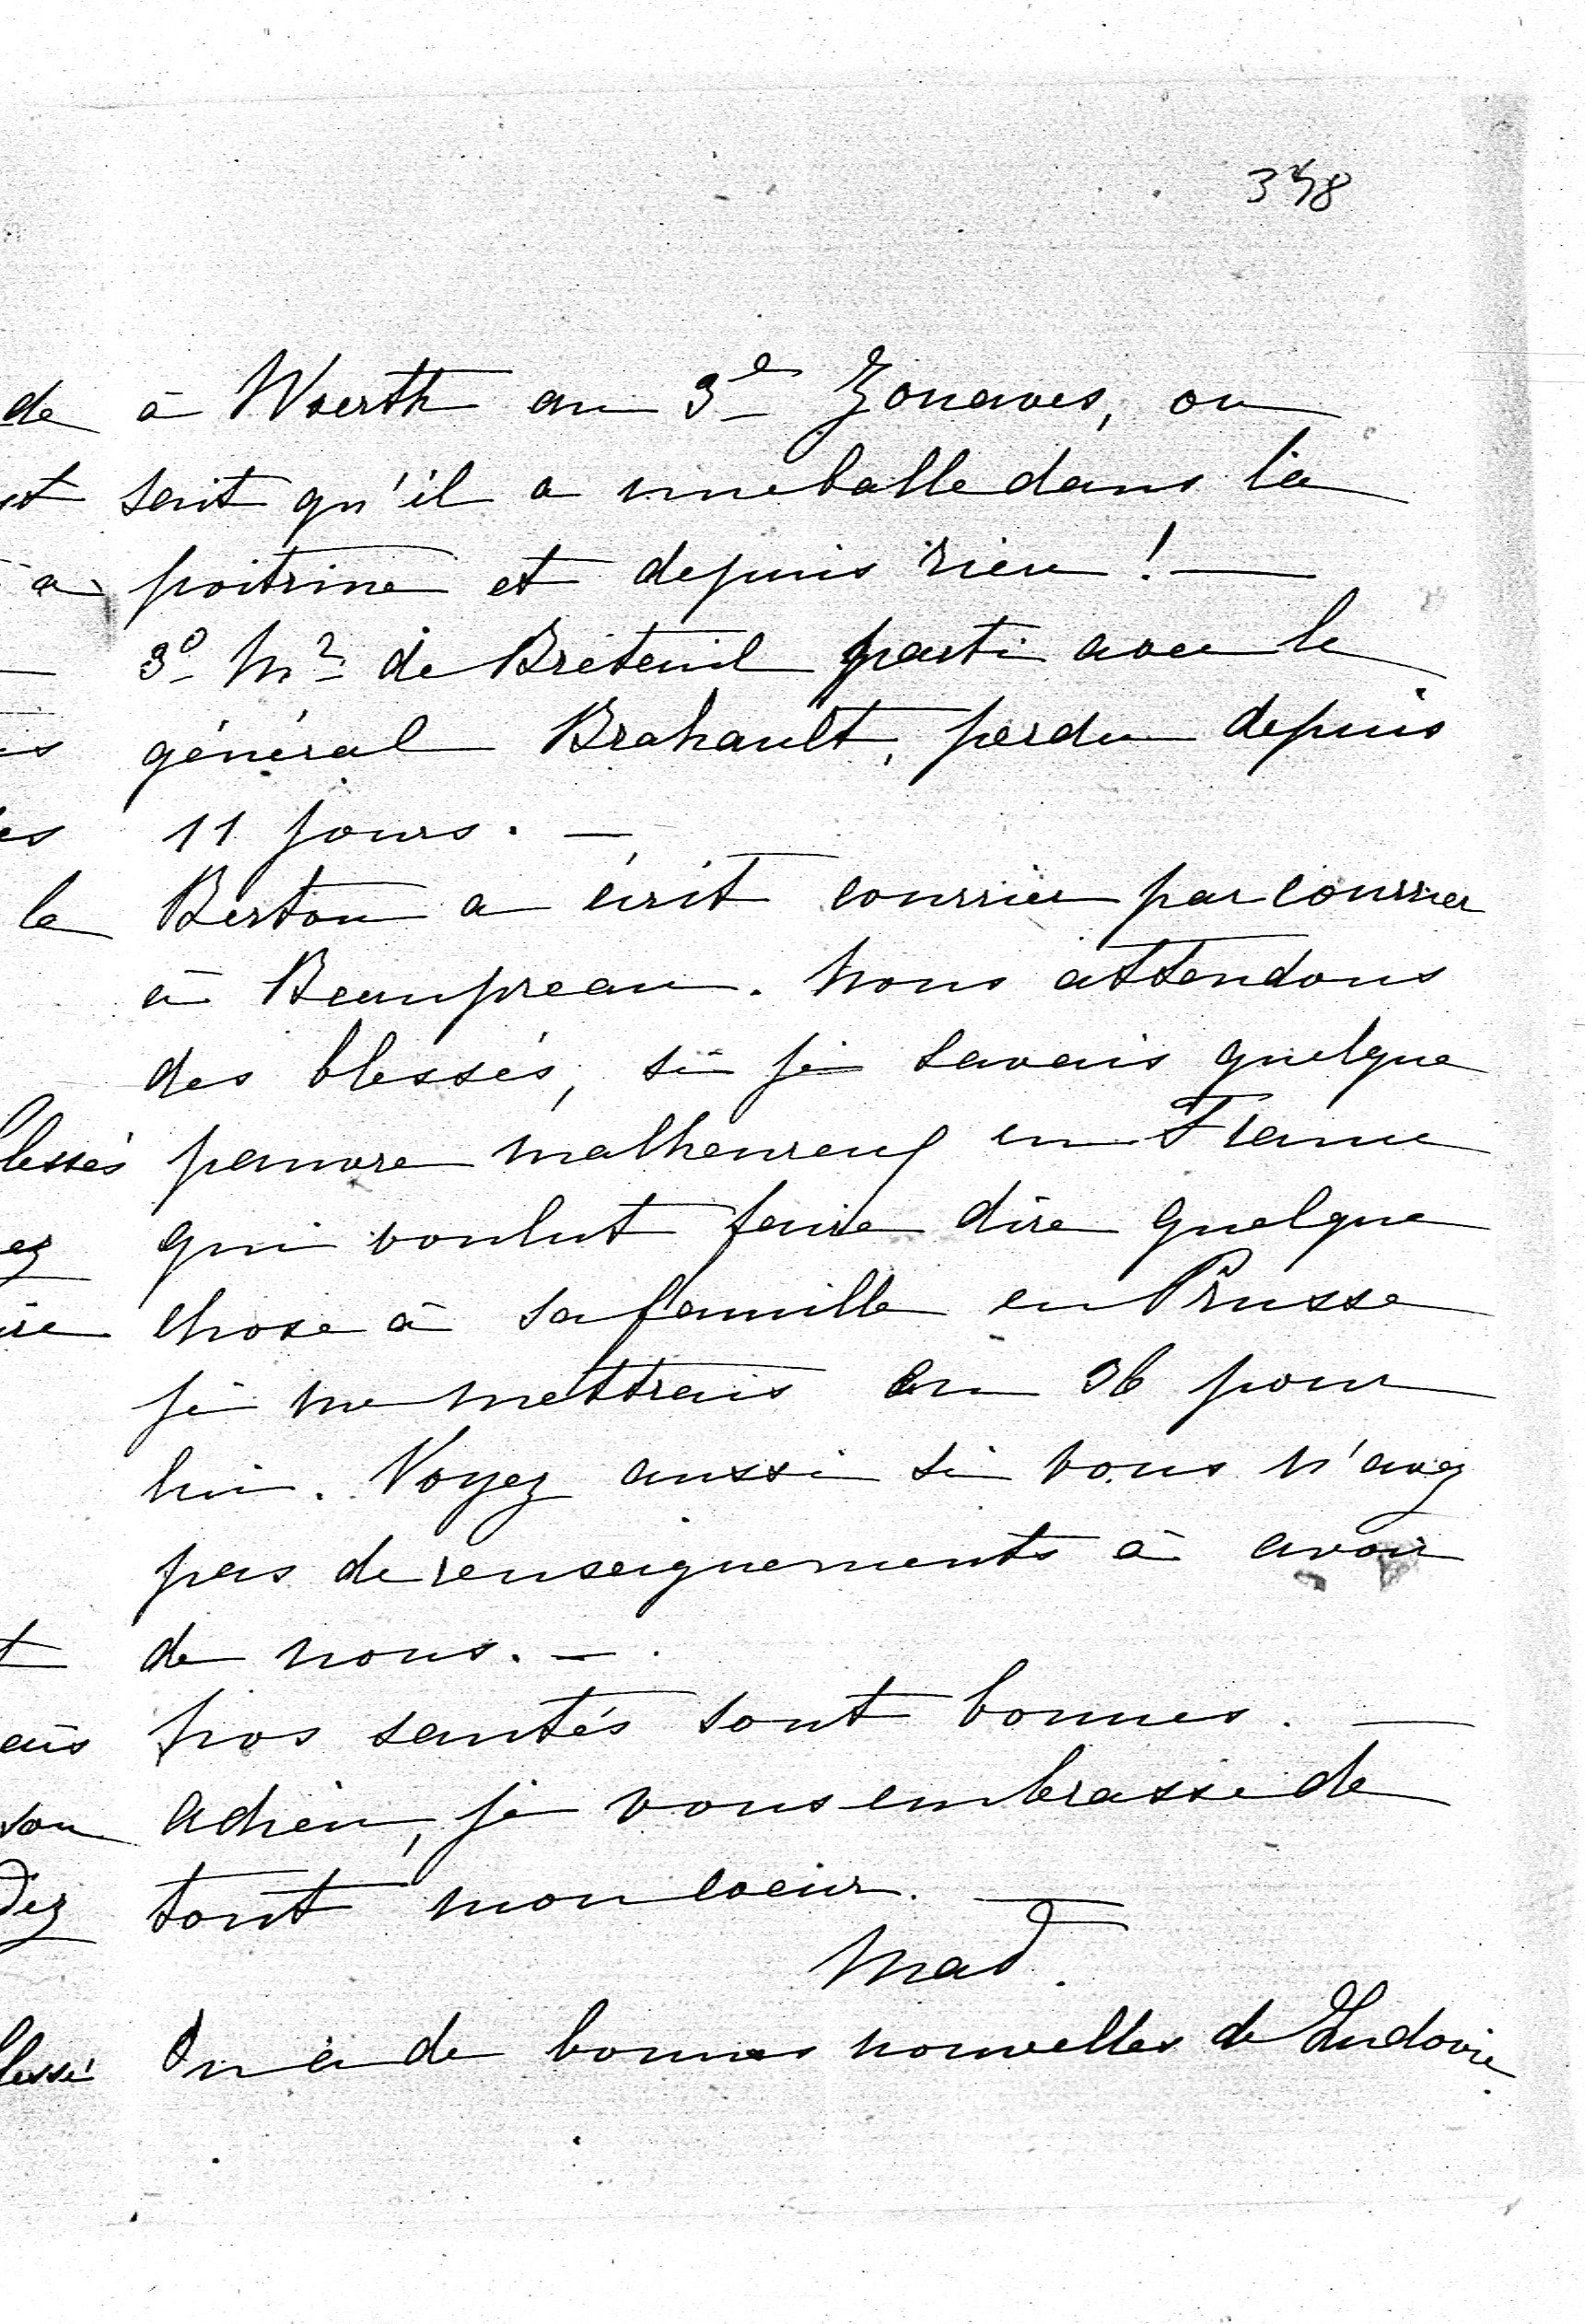 348
à Woerth au 3e Zouaves, on
sait qu'il a une balle dans la
poitrine et depuis rien ! —
3o Mr de Breteuil parti avec le
général Brahault, perdu depuis
11 jours. —
Berton a écrit courrier par courrier
à Beaupreau. Nous attendons
des blessés, si je savais quelque
pauvre malheureux en France
qui voulut faire dire quelque
chose à sa famille en Prusse
je me mettrais en 36 pour
lui. Voyez aussi si vous n'avez
pas de renseignements à avoir
de nous. —
Nos santés sont bonnes. —
adieu, je vous embrasse de
tout mon coeur. —
Mad.
On a de bonnes nouvelles de Ludovic.